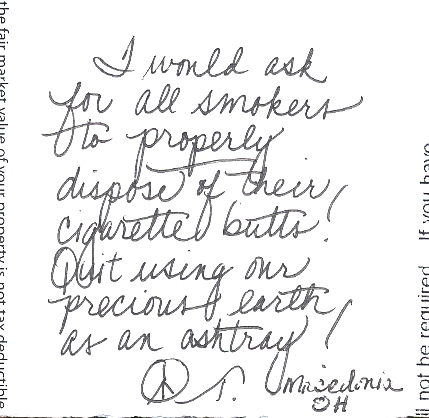 I would ask
for all smokers
to properly
dispose of their
cigarette butts!
Quit using our
precious earth
as an ashtray!
☮ T. Macedonia
OH
the fair market value of your property is not tax deductible
ll not be required. If you have